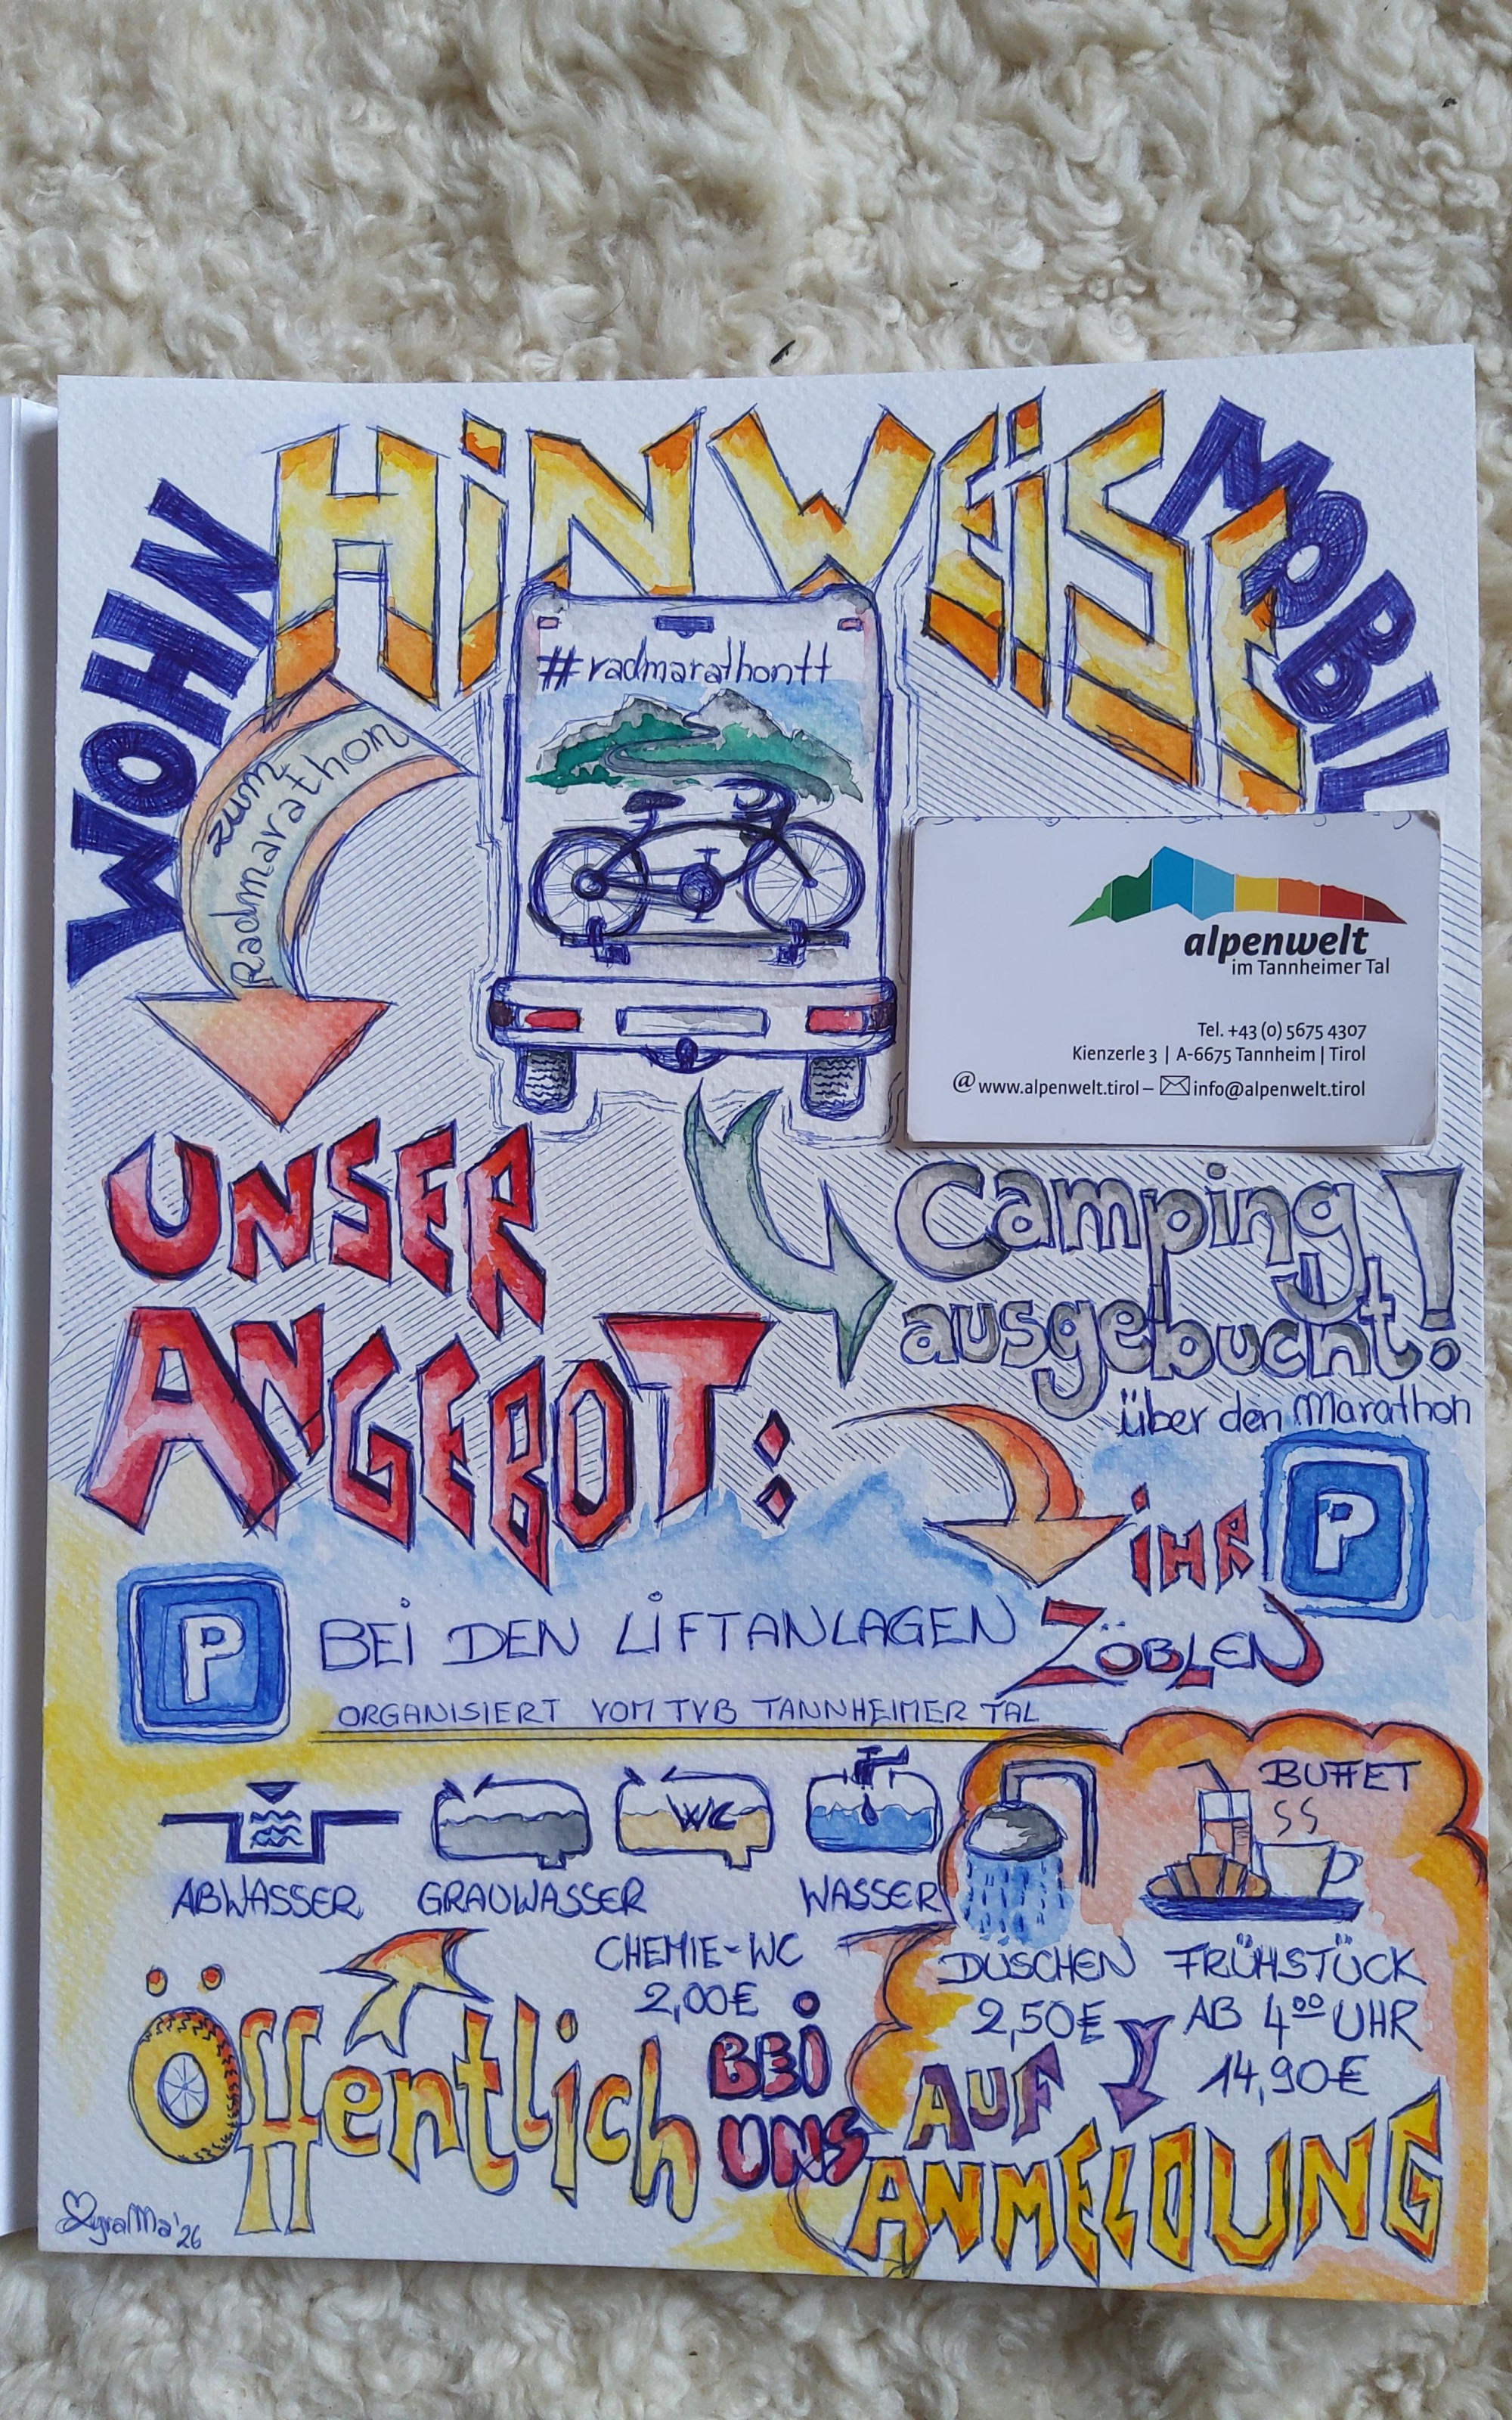 WOHN
HiNWEiSE
MOBIL
#radmarathontt
zum
Radmarathon
alpenwelt
im Tannheimer Tal
Tel. +43 (0) 5675 4307
Kienzerle 3 | A-6675 Tannheim | Tirol
@ www.alpenwelt.tirol – info@alpenwelt.tirol
UNSER
ANGEBOT:
Camping
ausgebucht!
über den Marathon
iHR P
ZÖBLEN
P BEi DEN LiFTANLAGEN
ORGANISIERT VOM TVB TANNHEIMER TAL
WC
BUFFET
ABWASSER GRAUWASSER WASSER
CHEMIE-WC
2,00€
DUSCHEN
2,50€
FRÜHSTÜCK
AB 4⁰⁰ UHR
14,90€
Öffentlich BEi
UNS
AUF
ANMELDUNG
'26